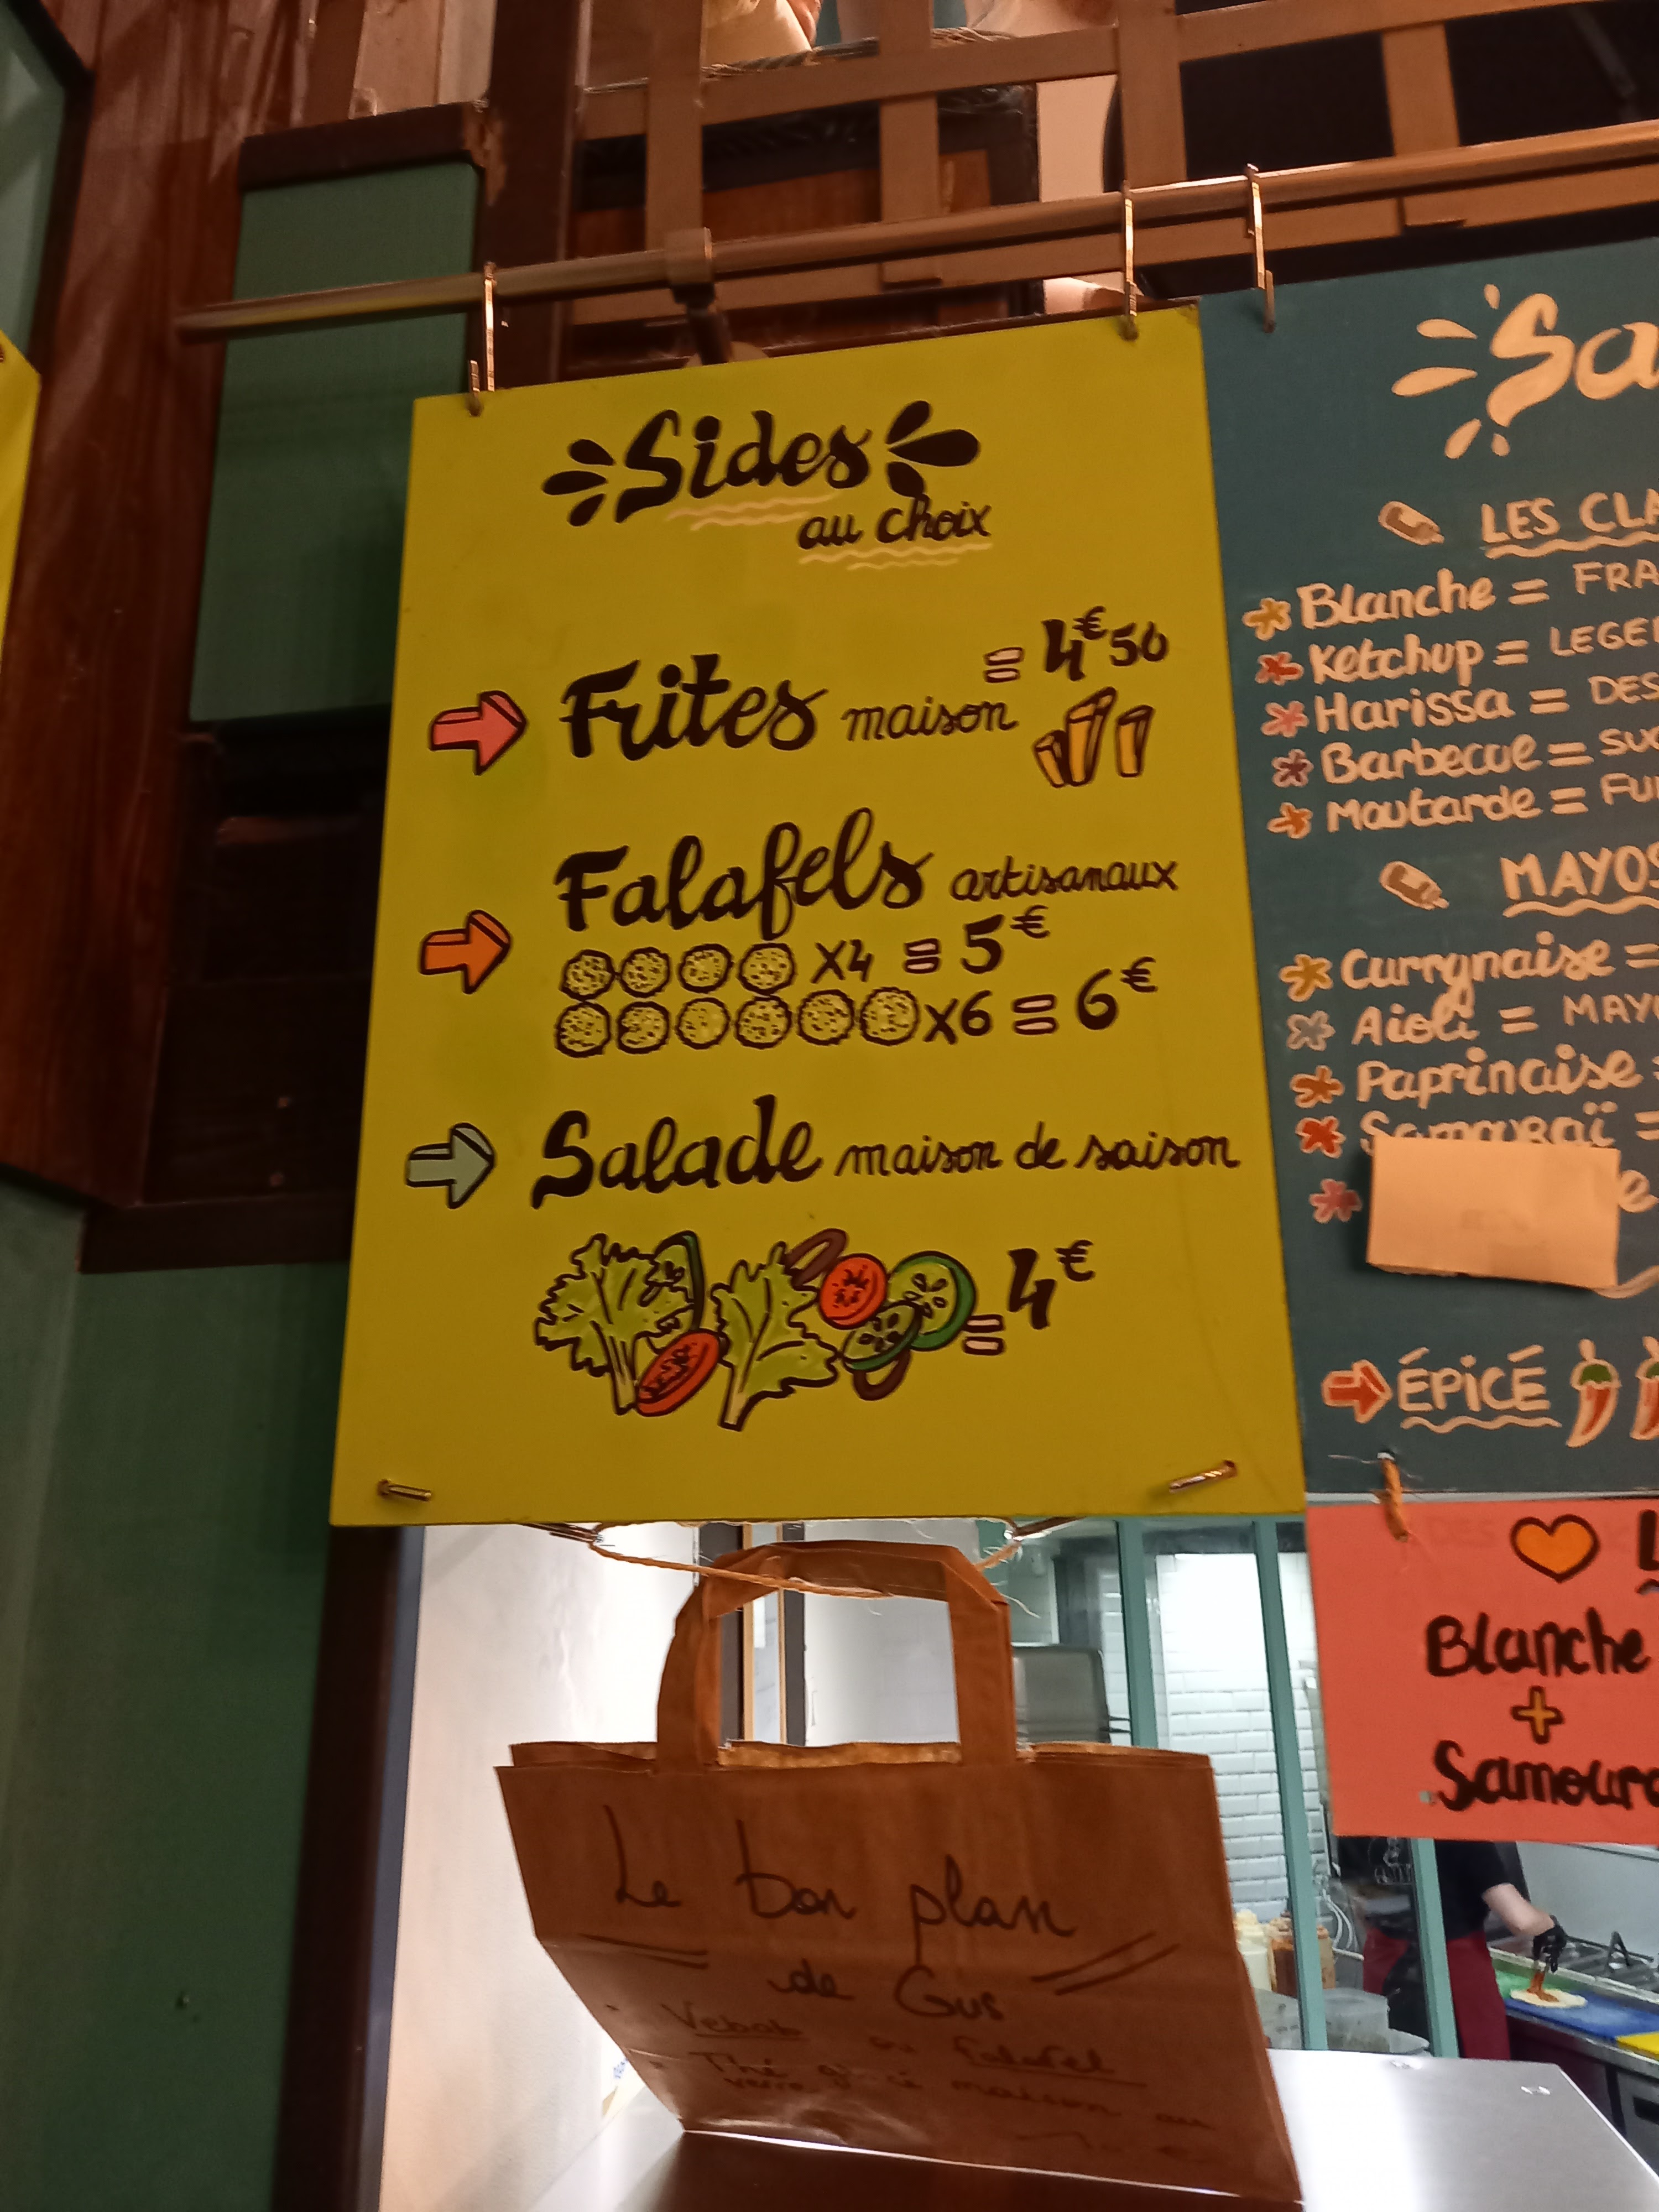 Sides
au choix
Frites maison = 4€50
Falafels artisanaux
x4 = 5€
x6 = 6€
Salade maison de saison
= 4€
Sa
LES CLA
Blanche = FRA
Ketchup = LEGE
Harissa = DES
Barbecue = SUC
Moutarde = FU
MAYOS
Currynaise =
Aioli = MAY
Paprinaise =
Samouraï =
e
ÉPICÉ
L
Blanche
+
Samoura
Le bon plan
de Gus
Vebab ou falafel
Thé glacé maison au
verre